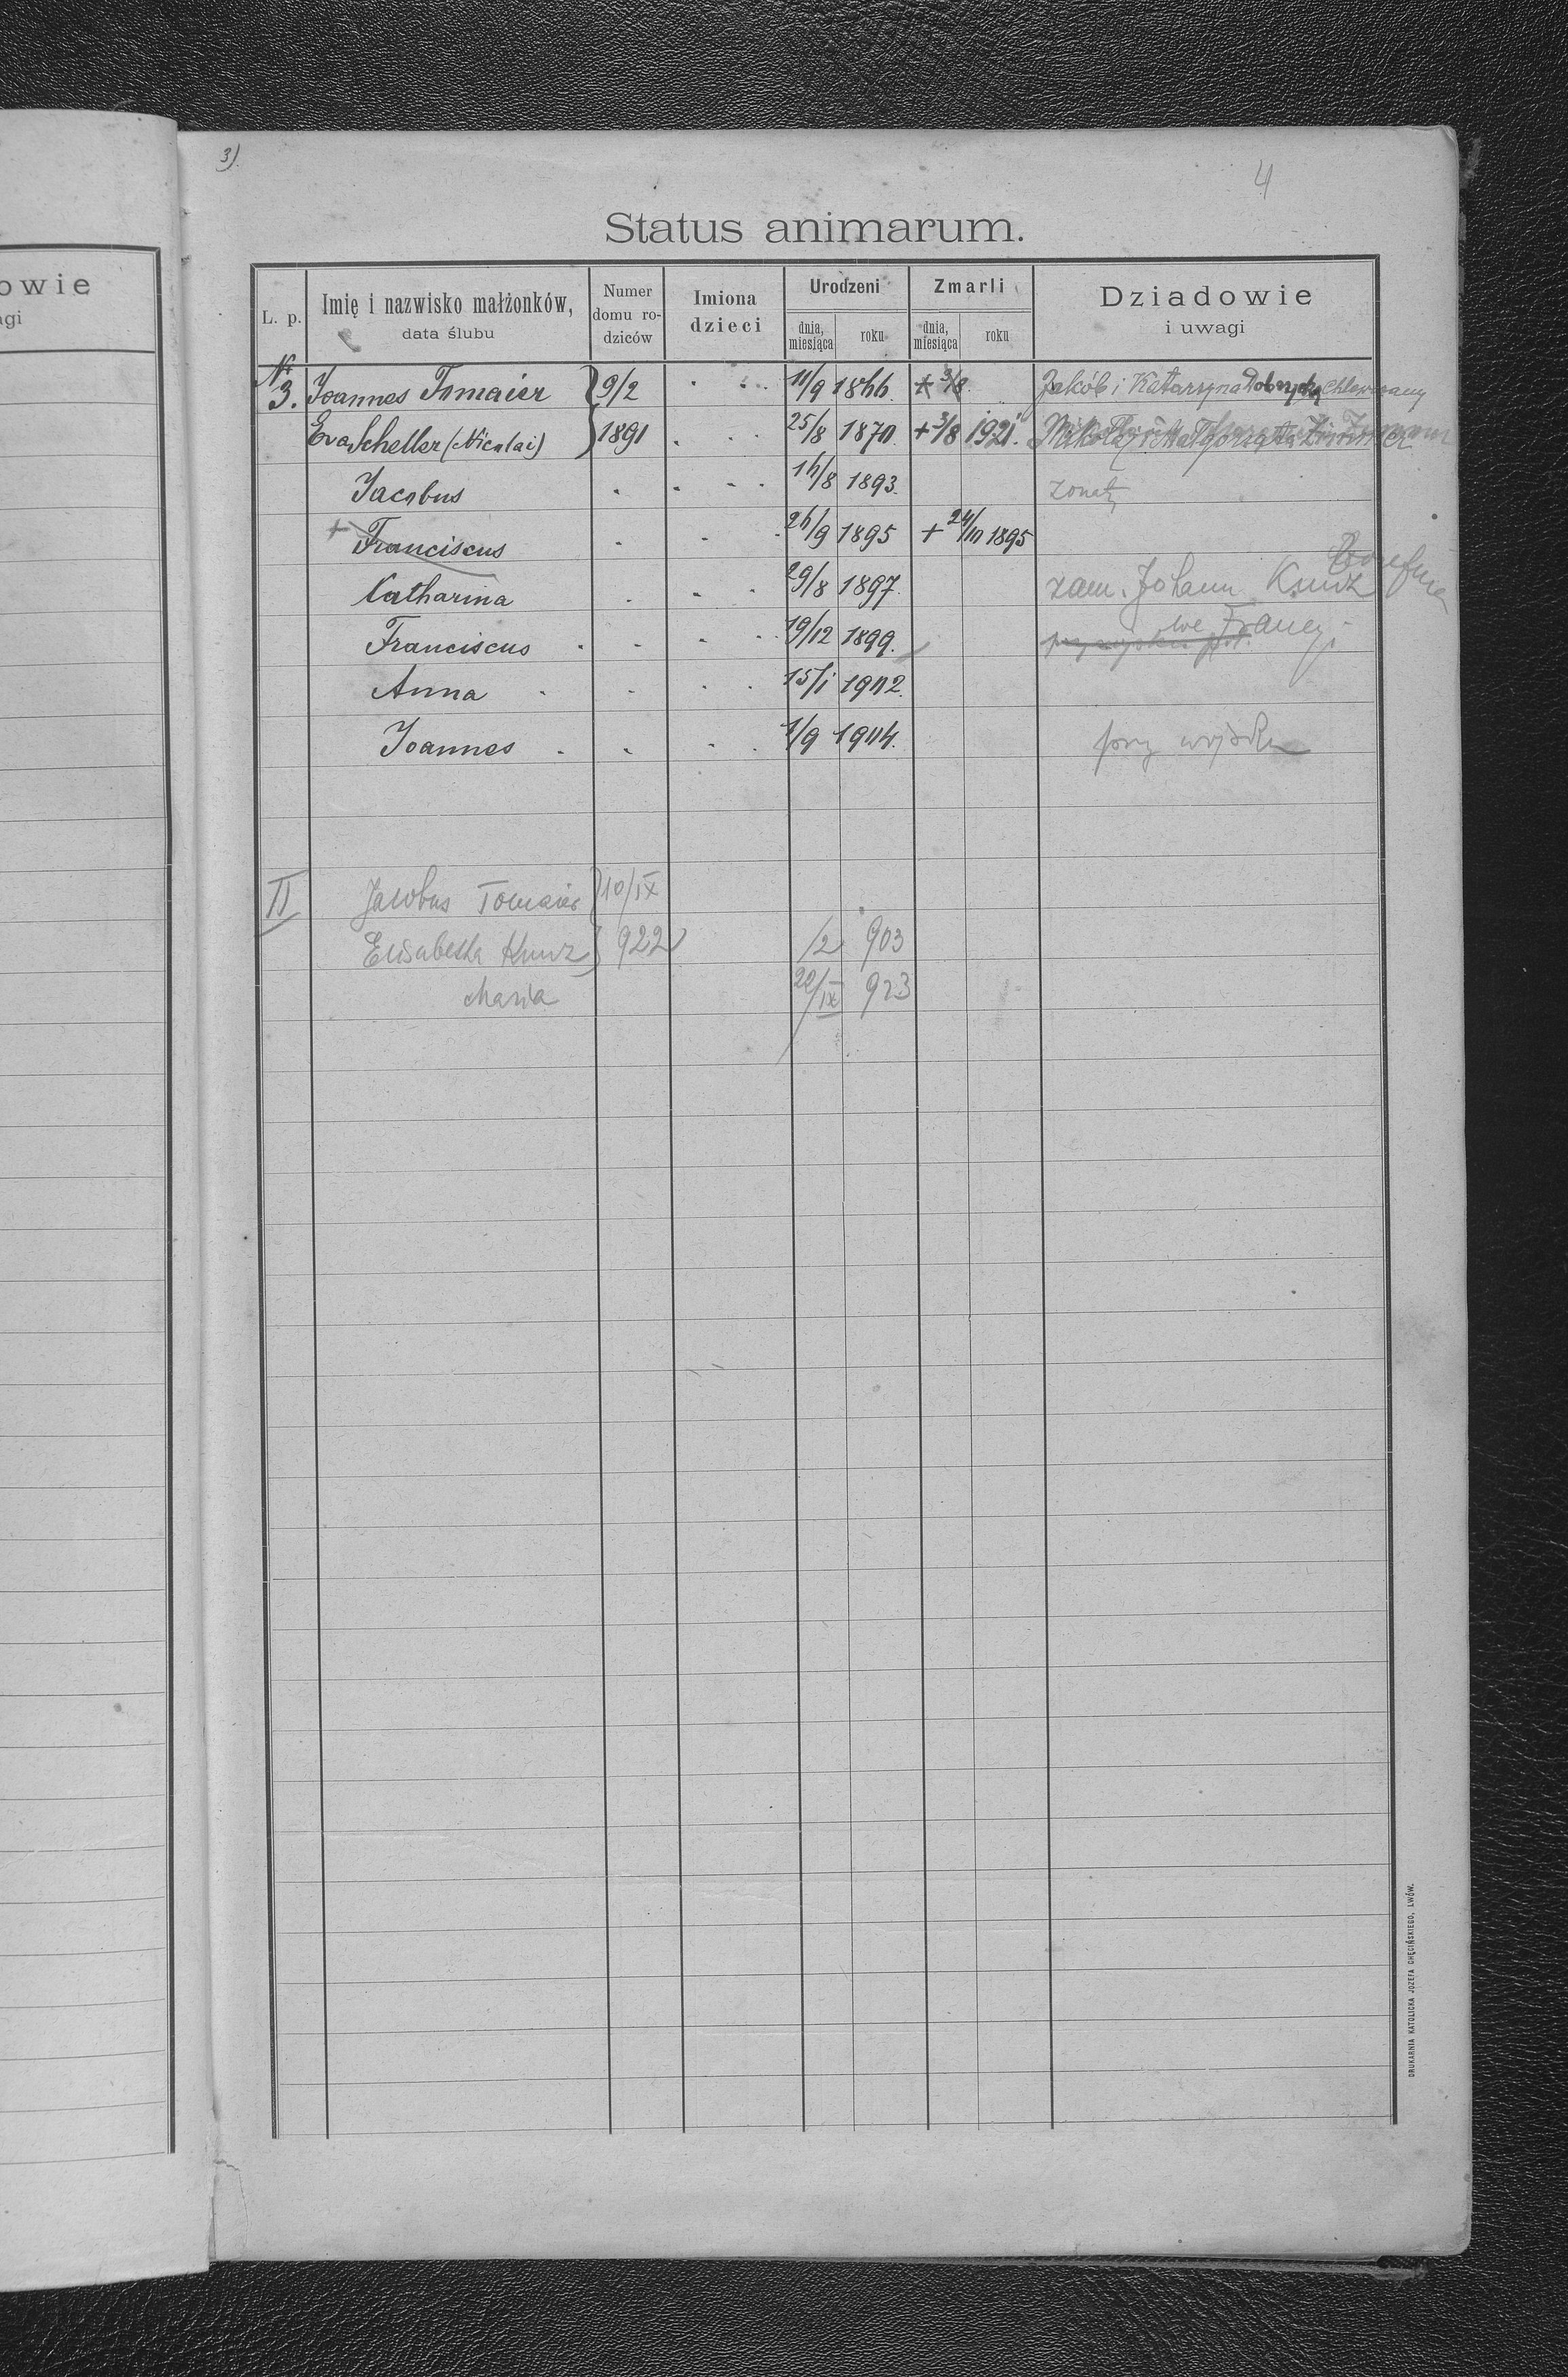 owie
agi
3).
4
Status animarum.
L. p.
Imię i nazwisko małżonków,
data ślubu
Numer
domu ro-
dziców
Imiona
dzieci
Urodzeni
dnia,
miesiąca
roku
Zmarli
dnia,
miesiąca
roku
Dziadowie
i uwagi
Nr
3. Joannes Tomaier 9/2 11/9 1866. + 3/8. Jakób i Katarzyna
Eva Scheller (Nicolai) 1891 25/8 1870. + 3/8 1921. Mikołaj i Małgorzata Zimmer
Jacobus 16/8 1893. żonaty
+ Franciscus 26/9 1895 + 24/10 1895
Catharina 29/8 1897. zam. Johann Kunz
Franciscus 19/12 1899. we Francji
Anna 15/1 1902.
Joannes 1/9 1904. przy wojsku
II Jacobus Tomaier 10/IX
Elisabetha Kunz 922 /2 903
Maria 22/IX 923
DRUKARNIA KATOLICKA JÓZEFA CHĘCIŃSKIEGO, LWÓW.